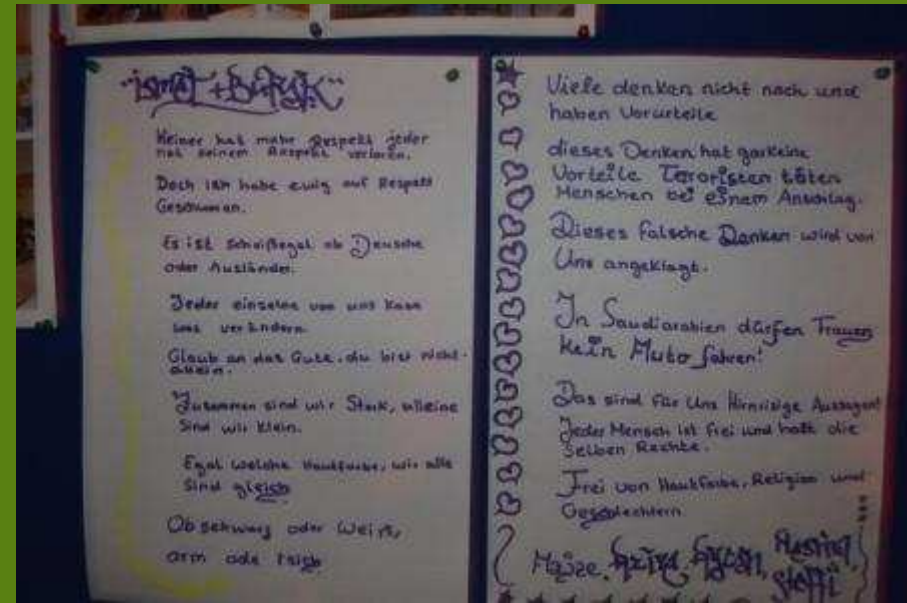 "ismat + Burak"
Keiner hat mehr Respekt jeder
hat seinem Respekt verloren.
Doch ich habe ewig auf Respekt
Geschworen.
Es ist Scheißegal ob Deusche
oder Ausländer.
Jeder einzelne von uns kann
was verändern.
Glaub an das Gute, du bist nicht
allein.
Zusammen sind wir Stark, alleine
Sind wir klein.
Egal welche Hautfarbe, wir alle
Sind gleich
Ob schwarz oder Weiß,
arm ode reich
Viele denken nicht nach und
haben Vorurteile
dieses Denken hat garkeine
Vorteile Teroristen töten
Menschen bei einem Anschlag.
Dieses falsche Denken wird von
Uns angeklagt.
In Saudiarabien dürfen Frauen
kein Auto fahren!
Das sind für Uns Hirnrisige Aussagen!
Jeder Mensch ist frei und hatt die
Selben Rechte.
Frei von Hautfarbe, Religion und
Geschlechtern
Steffi